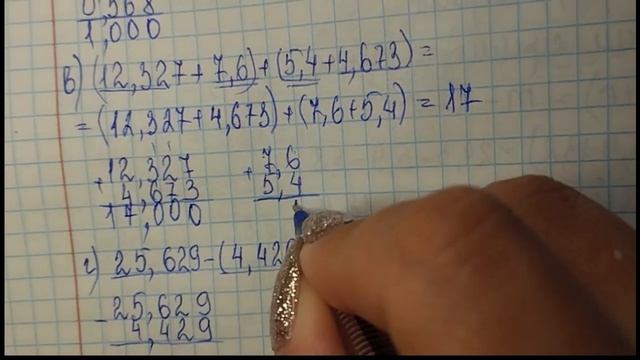 0,568
1,000
в) (12,327+7,6)+(5,4+4,673)=
=(12,327+4,673)+(7,6+5,4)=17
+12,327 +7,6
4,673 5,4
17,000
г) 25,629-(4,429
-25,629
4,429